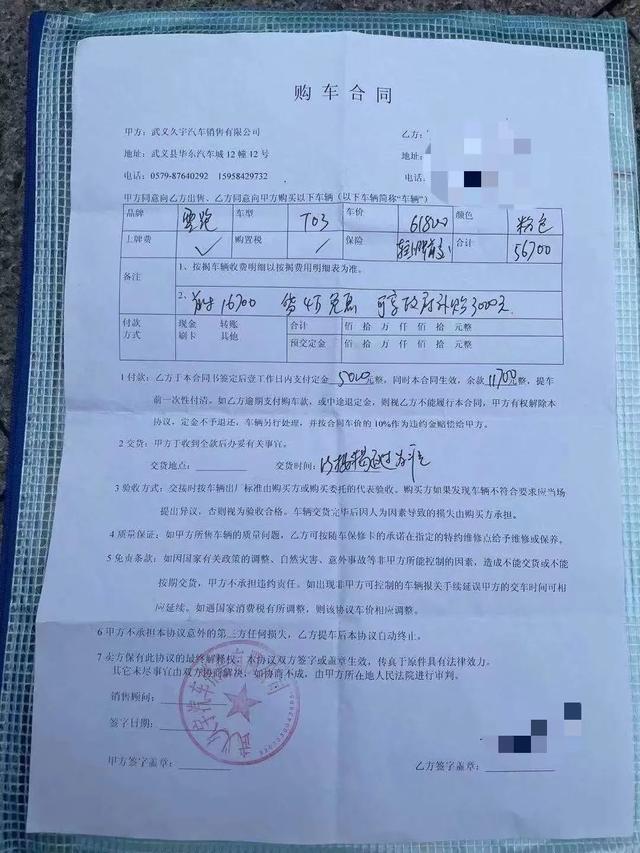 购车合同
甲方：武义久宇汽车销售有限公司 乙方：
地址：武义县华东汽车城12幢12号 地址：
电话：0579-87640292 15958429732 电话：
甲方同意向乙方出售、乙方同意向甲方购买以下车辆（以下车辆简称“车辆”）
品牌 零跑 车型 T03 车价 61800 颜色 粉色
上牌费 ✓ 购置税 / 保险 合计 56700
备注 1、按揭车辆收费明细以按揭费用明细表为准。
2、首付16700 贷4万免息 可享政府补贴3000元.
付款 现金 转账 合计 佰 拾 万 仟 佰 拾 元整
方式 刷卡 其他 预交定金 佰 拾 万 仟 佰 拾 元整
1 付款：乙方于本合同书签定后壹工作日内支付定金 5000 元整，同时本合同生效，余款 11700 元整，提车
前一次性付清。如乙方逾期支付购车款，或中途退定金，则视乙方不能履行本合同，甲方有权解除本
协议，定金不予退还，车辆另行处理，并按合同车价的10%作为违约金赔偿给甲方。
2 交货：甲方于收到全款后办妥有关事宜。
交货地点： 交货时间：以按揭通过为准
3 验收方式：交接时按车辆出厂标准由购买方或购买委托的代表验收。购买方如果发现车辆不符合要求应当场
提出异议，否则视为验收合格。车辆交货完毕后因人为因素导致的损失由购买方承担。
4 质量保证：如甲方所售车辆的质量问题，乙方可按随车保修卡的承诺在指定的特约维修点给予维修或保养。
5 免责条款：如因国家有关政策的调整、自然灾害、意外事故等非甲方所能控制的因素，造成不能交货或不能
按期交货，甲方不承担违约责任。如出现非甲方可控制的车辆报关手续延误甲方的交车时间可相
应延续。如遇国家消费税有所调整，则该协议车价相应调整。
6 甲方不承担本协议意外的第三方任何损失，乙方提车后本协议自动终止。
7 卖方保有此协议的最终解释权，本协议双方签字或盖章生效，传真于原件具有法律效力。
其它未尽事宜由双方协商解决，如协商不成，由甲方所在地人民法院进行审判。
销售顾问：
签字日期：
甲方签字盖章： 乙方签字盖章：